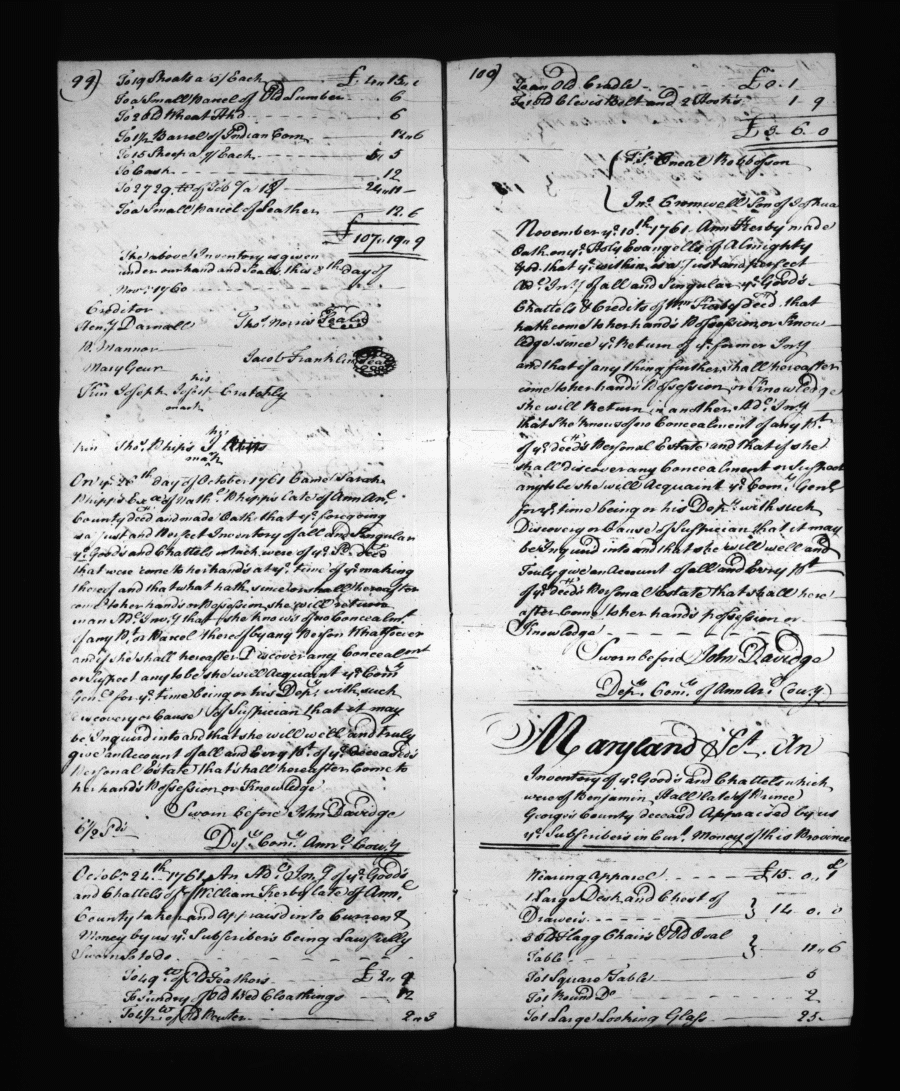 99)
To 19 Shoats a 5/ Each £4 " 15 "
To a Small Parcel of Old Lumber 6
To 2 Old Wheat
To 1½ Barrel of Indian Corn 12 " 6
To 15 Sheep a 7/ Each 5 " 5
To Cash 12
To 2729 lb of Tob
To a Small Parcel of Leather 12 " 6
£107 " 19 " 9
The above Inventory is given
under our hand and Seals this 8th day of
Novr 1760
Creditor
Henry Darnall Thos Norris Seal
W. Mannor
Mary Geur Jacob Franklin Seal
Kin Joseph his Cratchly
mark
Kin Thos Phips his
mark
On ye 26th day of October 1761 Came Sarah
Phipps Exa of Nathl Phipps late of Ann Arl
County deced and made Oath that ye foregoing
is a Just and Perfect Inventory of all and Singular
ye Goods and Chattels which were of ye Sd deced
that were come to her hands at ye time of ye making
thereof and that what hath since or shall hereafter
come to her hands or Possession she will return
in an Adl Invy that she knows of no Concealmt
of any Pt or Parcel thereof by any Person Whatsoever
and if she shall hereafter Discover any Concealment
or Suspect any to be she will Acquaint ye Comy
Genl for ye time being or his Depty with such
Discovery or Cause of Suspician that it may
be Inquired into and that she will well and truly
give an Account of all and Every Pt of ye deceased's
Personal Estate that shall hereafter Come to
her hands Possession or Knowledge
Sworn before John Davidge
Depty Comy Ann Arl Couy
October 24th 1761 An Adl Invy of ye Goods
and Chattels of William Kerby late of Ann Arl
County taken and Appraised in to Current
Money by us ye Subscribers being Lawfully
Sworn so to do
To 4 lb of Old Feathers £ 2 " 9
To Sundry of Old Wed Cloathings 12
To 4½ lb of Old Pewter 2 " 3
100)
To an Old Cradle £0 . 1
To 1 Old Clevis Bolt and 2 Hooks 1 . 9
£3 . 6 . 0
Oneal Robbosson
Jno Cromwell Son of Joshua
November ye 10th 1761 Ann Kerby made
Oath on ye Holy Evangells of Almighty
God that ye within is a Just and perfect
Adl Invy of all and Singular ye Goods
Chattels & Credits of Wm Kerby deced that
hath come to her hands Possession or Know-
ledge since ye Return of ye former Invy
and that if any thing further shall hereafter
come to her hands Possession or Knowledge
She will Return in another Adl Invy
that She knows of no Concealment of any Pt
of ye deced's Personal Estate and that if she
shall discover any Concealment or Suspect
any to be she will Acquaint ye Comy Genl
for ye time being or his Depty with such
Discovery or Cause of Suspician that it may
be Inquired into and that she will well and
Truly give an Account of all and Evry Pt
of ye deced's Personal Estate that shall here
after Come to her hands possession or
Knowledge
Sworn before John Davidge
Depty Comy of Ann Arl Couy
Maryland Sct. An
Inventory of ye Goods and Chattels which
were of Benjamin Hall late of Prince
Georges County deceasd Appraised by us
ye Subscribers in Curt Money of this Province
Wearing Apparel £15 . 0 . 1
1 Large Desk and Chest of
Drawers 14 . 0 . 0
3 Old Flagg Chairs & Old Oval
Table 11 " 6
To 1 Square Table 6
To 1 Round Do 2
To 1 Large Looking Glass 25